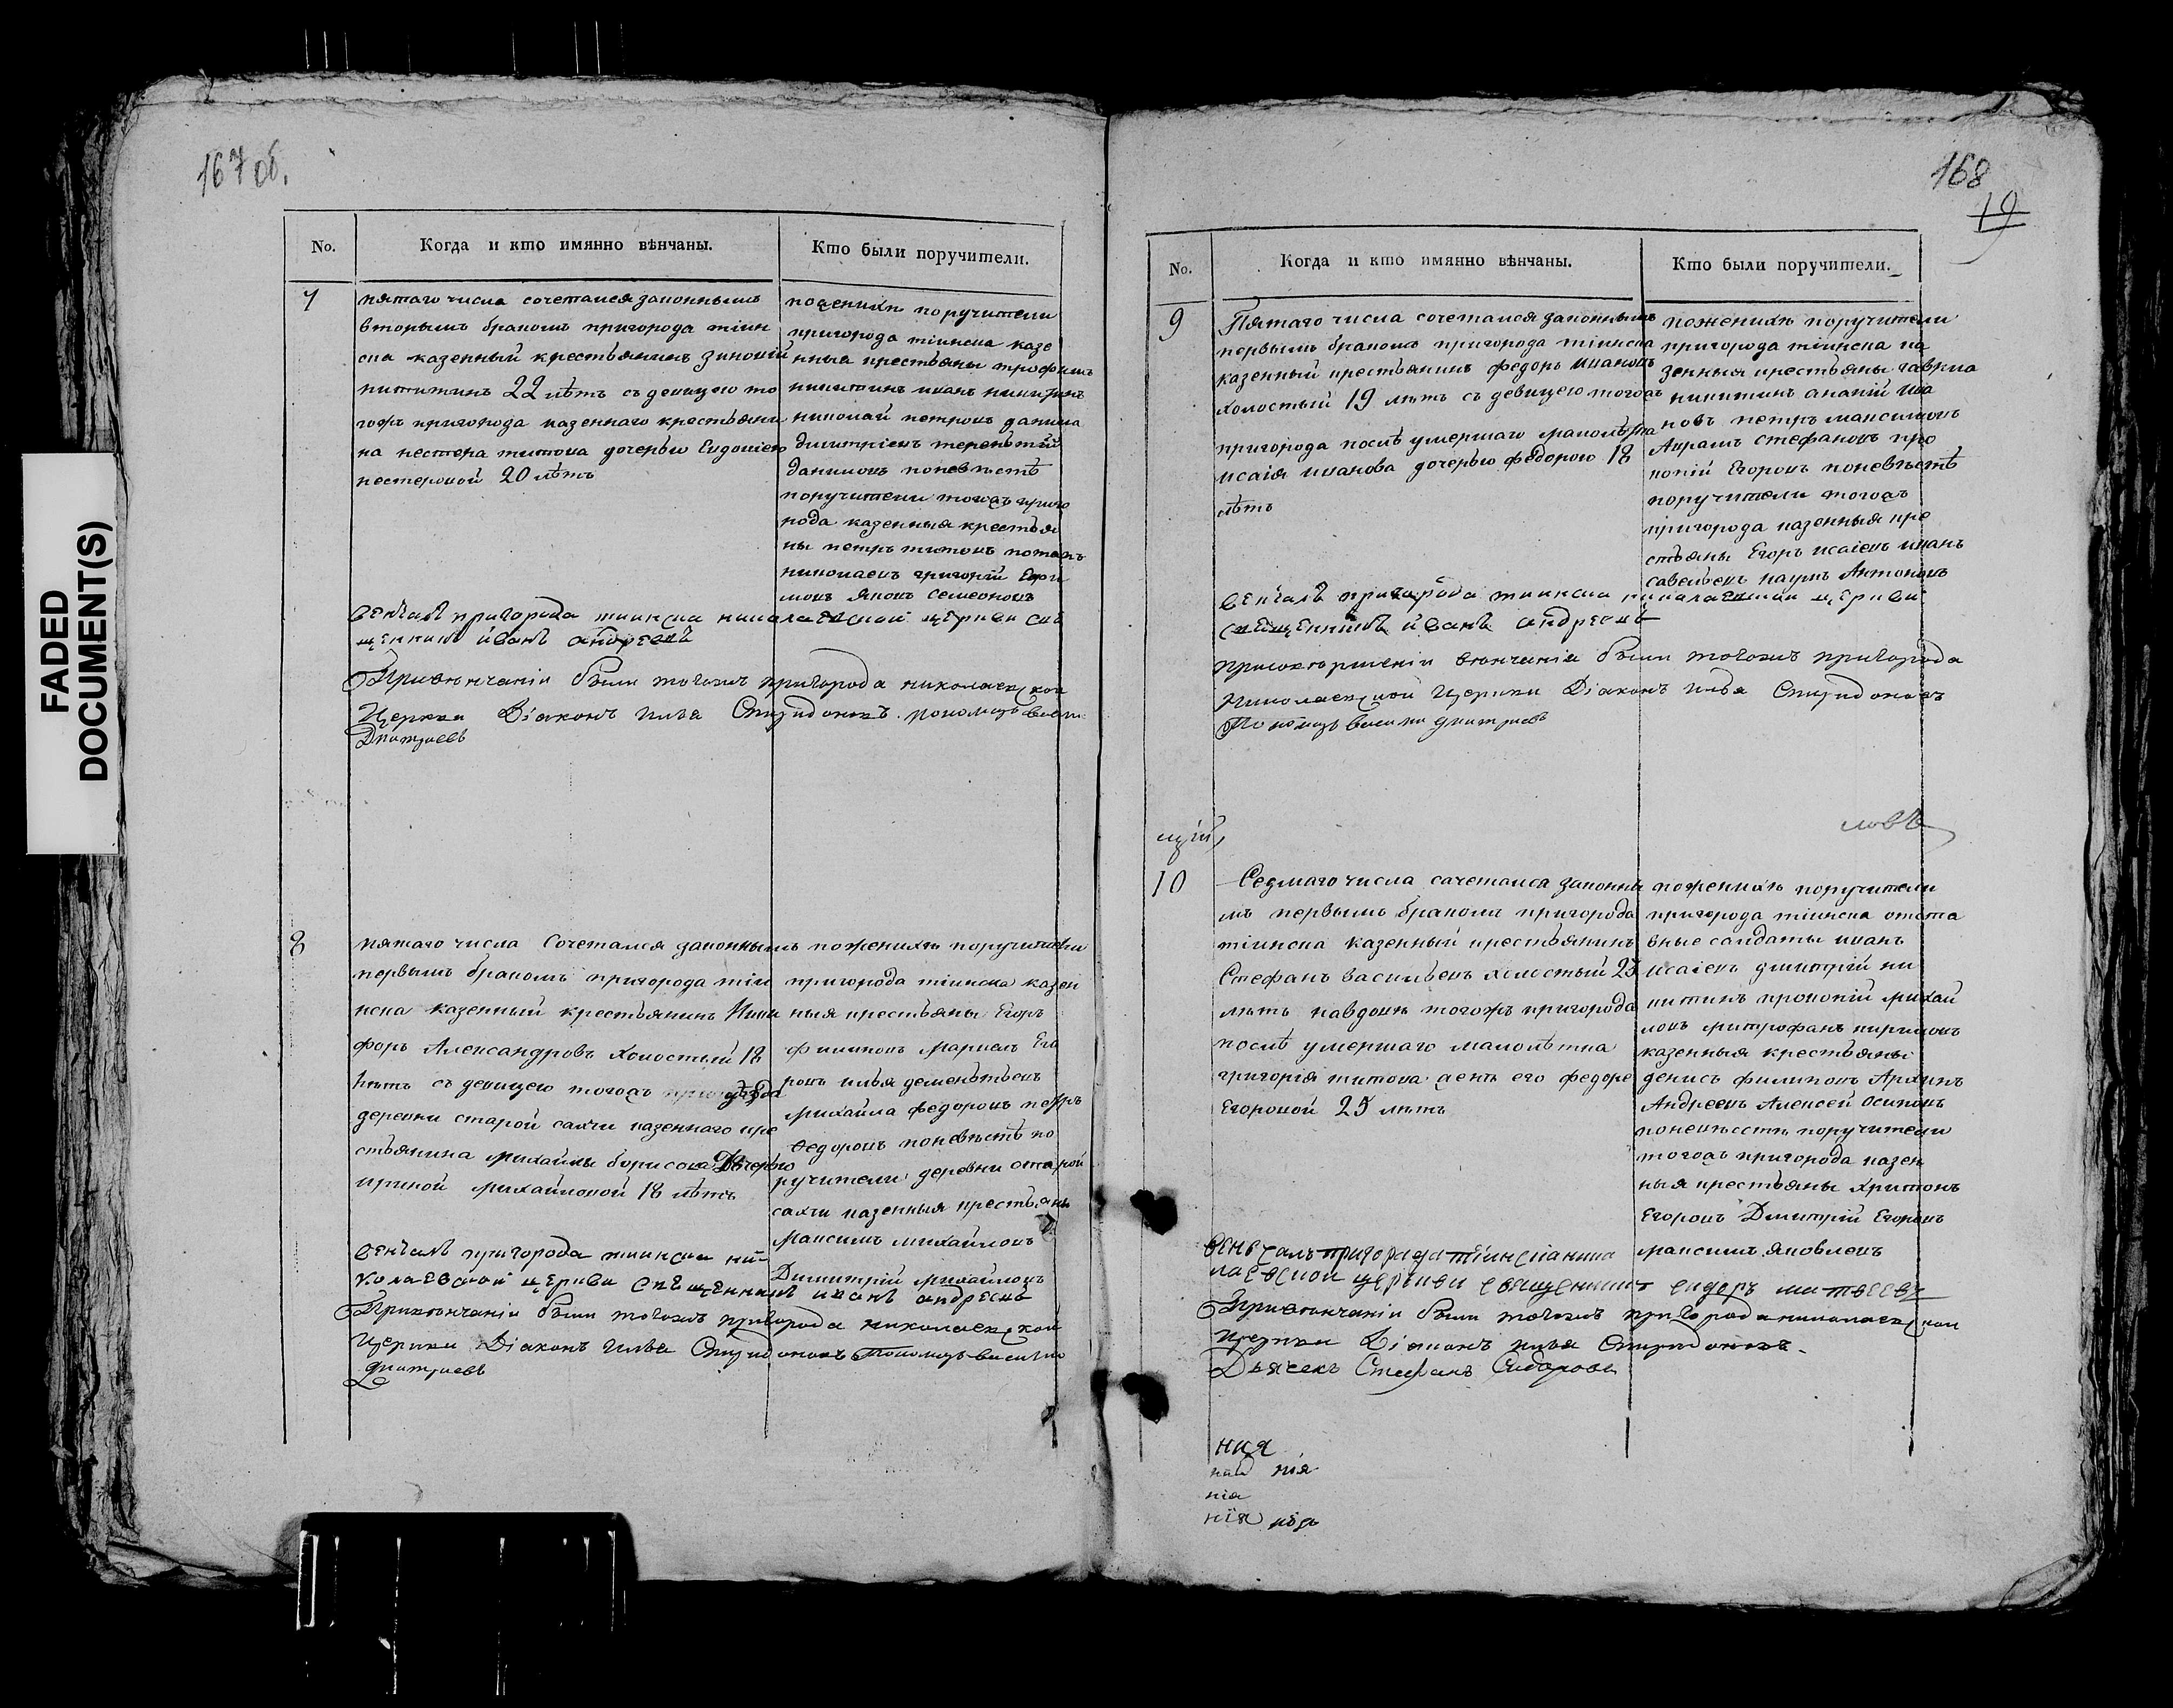 FADED
DOCUMENT(S)
167 об.
No.
Когда и кто имянно вѣнчаны.
Кто были поручители.
7
пятаго числа сочетался законнымъ
вторымъ бракомъ пригорода тіин
ска казенный крестьянинъ зиновій
никитинъ 22 лѣтъ съ девицею то
гожъ пригорода казеннаго крестьяни
на нестера титова дочерью Евдокіею
нестеровой 20 лѣтъ
пожених поручители
пригорода тіинска казе
нныя крестьяны трофимъ
никитинъ иванъ никитинъ
николай петровъ данила
димитріевъ терентій
даниловъ поневѣстѣ
поручители тогожъ приго
рода казенныя крестья
ны петръ титовъ потапъ
николаевъ григорій Ефи
мовъ яковъ семеоновъ
венчалъ пригорода тиинска николаевской церкви свя
щенникъ иванъ андреевъ
Привѣнчаніи были тогожъ пригорода николаевской
Церкви Діаконъ илья Спиридоновъ пономарь васили
Дмитриевъ
8
пятаго числа сочетался законнымъ
первымъ бракомъ пригорода тіи
нска казенный крестьянинъ Ники
форъ Александровъ холостый 18
лѣтъ съ девицею тогожъ
деревни старой сахчи казеннаго кре
стьянина михайлы борисова Дочерью
ириной михайловой 18 лѣтъ
пожених поручители
пригорода тіинска казен
ныя крестьяны Егоръ
филиповъ маркелъ Его
ровъ илья дементьевъ
михайла федоровъ петръ
Федоровъ поневѣстѣ по
ручители деревни старой
сахчи казенныя крестьяны
максимъ михайловъ
Димитрій михайловъ
венчалъ пригорода тиинска ни
колаевской церкви священникъ иванъ андреевъ
Привѣнчаніи были тогожъ пригорода николаевской
Церкви Діаконъ илья Спиридоновъ Пономарь василий
Дмитриевъ
168
19
No.
Когда и кто имянно вѣнчаны.
Кто были поручители.
9
Пятаго числа сочетался законнымъ
первымъ бракомъ пригорода тіинска
казенный крестьянинъ федоръ ивановъ
холостый 19 лѣтъ съ девицею тогожъ
пригорода послѣ умершаго малолѣтка
исаія иванова дочерью федорою 18
лѣтъ
пожених поручители
пригорода тіинска ка
зенныя крестьяны гаврила
никитинъ ананій ива
новъ петръ максимовъ
Аврамъ стефановъ про
копій Егоровъ поневѣстѣ
поручители тогожъ
пригорода казенныя кре
стьяны Егоръ исаіевъ иванъ
савельевъ наумъ Антоновъ
венчалъ пригорода тиинска николаевской церкви
священникъ иванъ андреевъ
присовершеніи венчанія были тогожъ пригорода
Николаевской Церкви Діаконъ илья Спиридоновъ
Пономарь василий дмитриевъ
ловъ
10
Седмаго числа сачетался законны
мъ первымъ бракомъ пригорода
тіинска казенный крестьянинъ
Стефанъ васильевъ холостый 23
лѣтъ навдове тогожъ пригорода
послѣ умершаго малолѣтка
григорія титова женѣ его федоре
Егоровой 25 лѣтъ
пожених поручители
пригорода тіинска отста
вные салдаты иванъ
исаіевъ димитрій ни
китинъ прокопій михай
ловъ митрофанъ кириловъ
казенныя крестьяны
денисъ филиповъ Архипъ
Андреевъ Алексей осиповъ
поневѣсте поручители
тогожъ пригорода казен
ныя крестьяны харитонъ
Егоровъ Димитрій Егоровъ
максимъ яковлевъ
венчалъ пригорада тиинска нико
лаевской церкви священникъ сидоръ матвеевъ
Привѣнчаніи были тогожъ пригорода николаевской
Церкви Діаконъ илья Спиридоновъ
Дьячекъ Стефанъ Сидоровъ
ния
нія
нія
нія